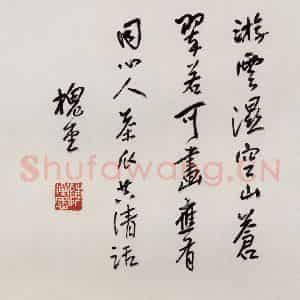 游雲濕空山蒼
翠若可畫應有
同心人茶瓜共清話
槐堂
Shufawang.CN